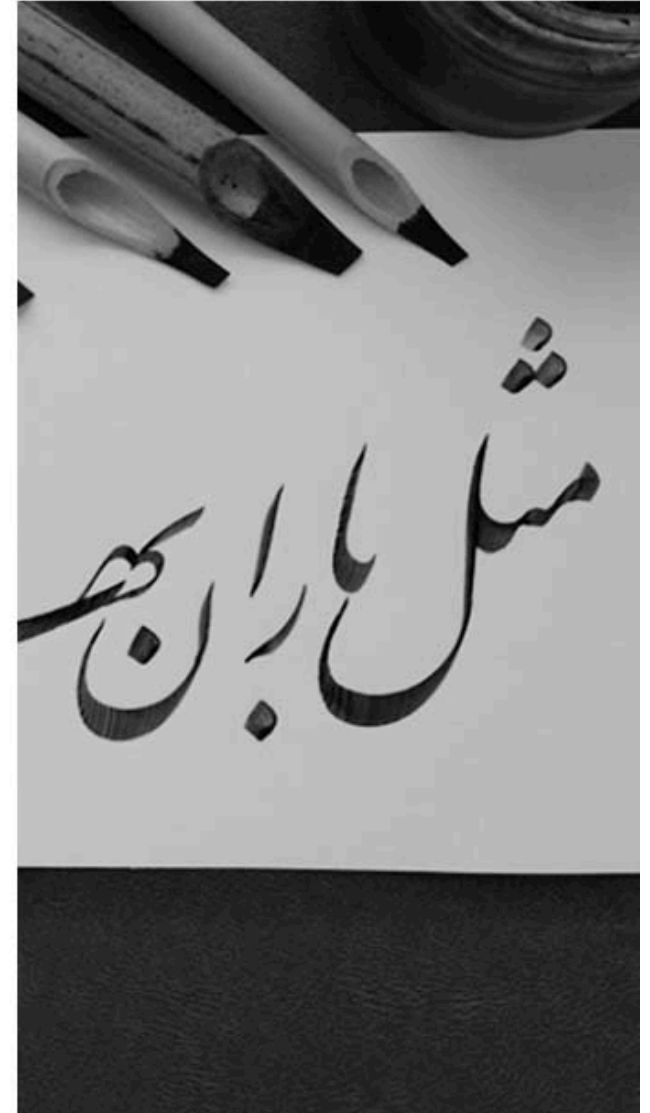 مثل باران به